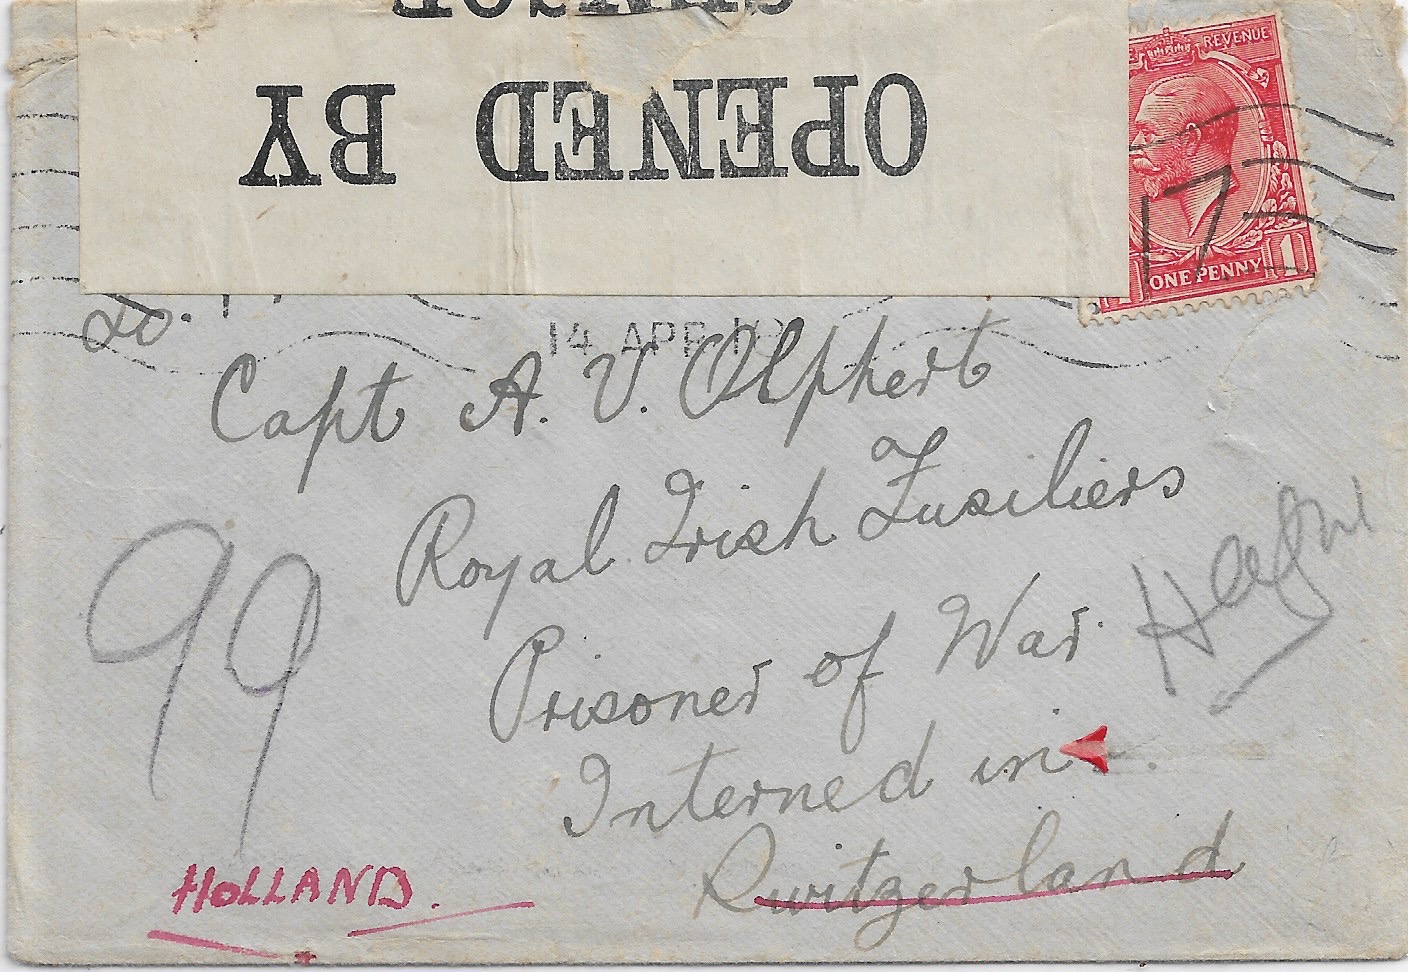 CENSOR
OPENED BY
REVENUE
17
ONE PENNY
1
20.
14 APR 18
Capt A. V. Olphert
Royal Irish Fusiliers
Prisoner of War
Interned in
Switzerland
99
HOLLAND.